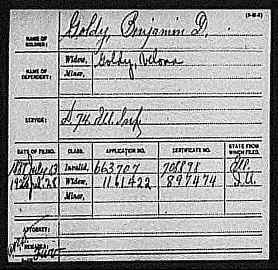 (3-M-6)
NAME OF SOLDIER: Goldy, Benjamin D.
NAME OF DEPENDENT: Widow, Goldy, Velona
Minor,
SERVICE: D. 74 Ill. Inf.
DATE OF FILING. CLASS. APPLICATION NO. CERTIFICATE NO. STATE FROM WHICH FILED.
July 13 Invalid, 663707
1926 Widow, 1161422 897474
Minor,
ATTORNEY:
REMARKS: